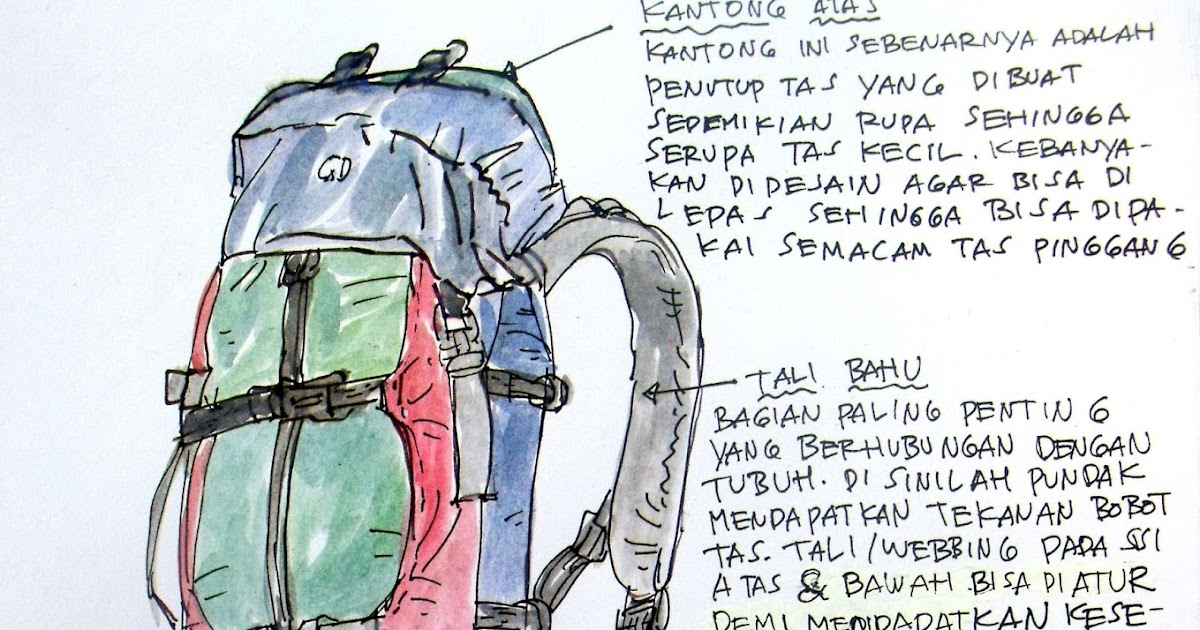 KANTONG ATAS
KANTONG INI SEBENARNYA ADALAH
PENUTUP TAS YANG DIBUAT
SEDEMIKIAN RUPA SEHINGGA
SERUPA TAS KECIL. KEBANYA-
KAN DIDESAIN AGAR BISA DI
LEPAS SEHINGGA BISA DIPA-
KAI SEMACAM TAS PINGGANG
TALI BAHU
BAGIAN PALING PENTING
YANG BERHUBUNGAN DENGAN
TUBUH. DI SINILAH PUNDAK
MENDAPATKAN TEKANAN BOBOT
TAS. TALI/WEBBING PADA SSI
ATAS & BAWAH BISA DIATUR
DEMI MENDAPATKAN KESE-